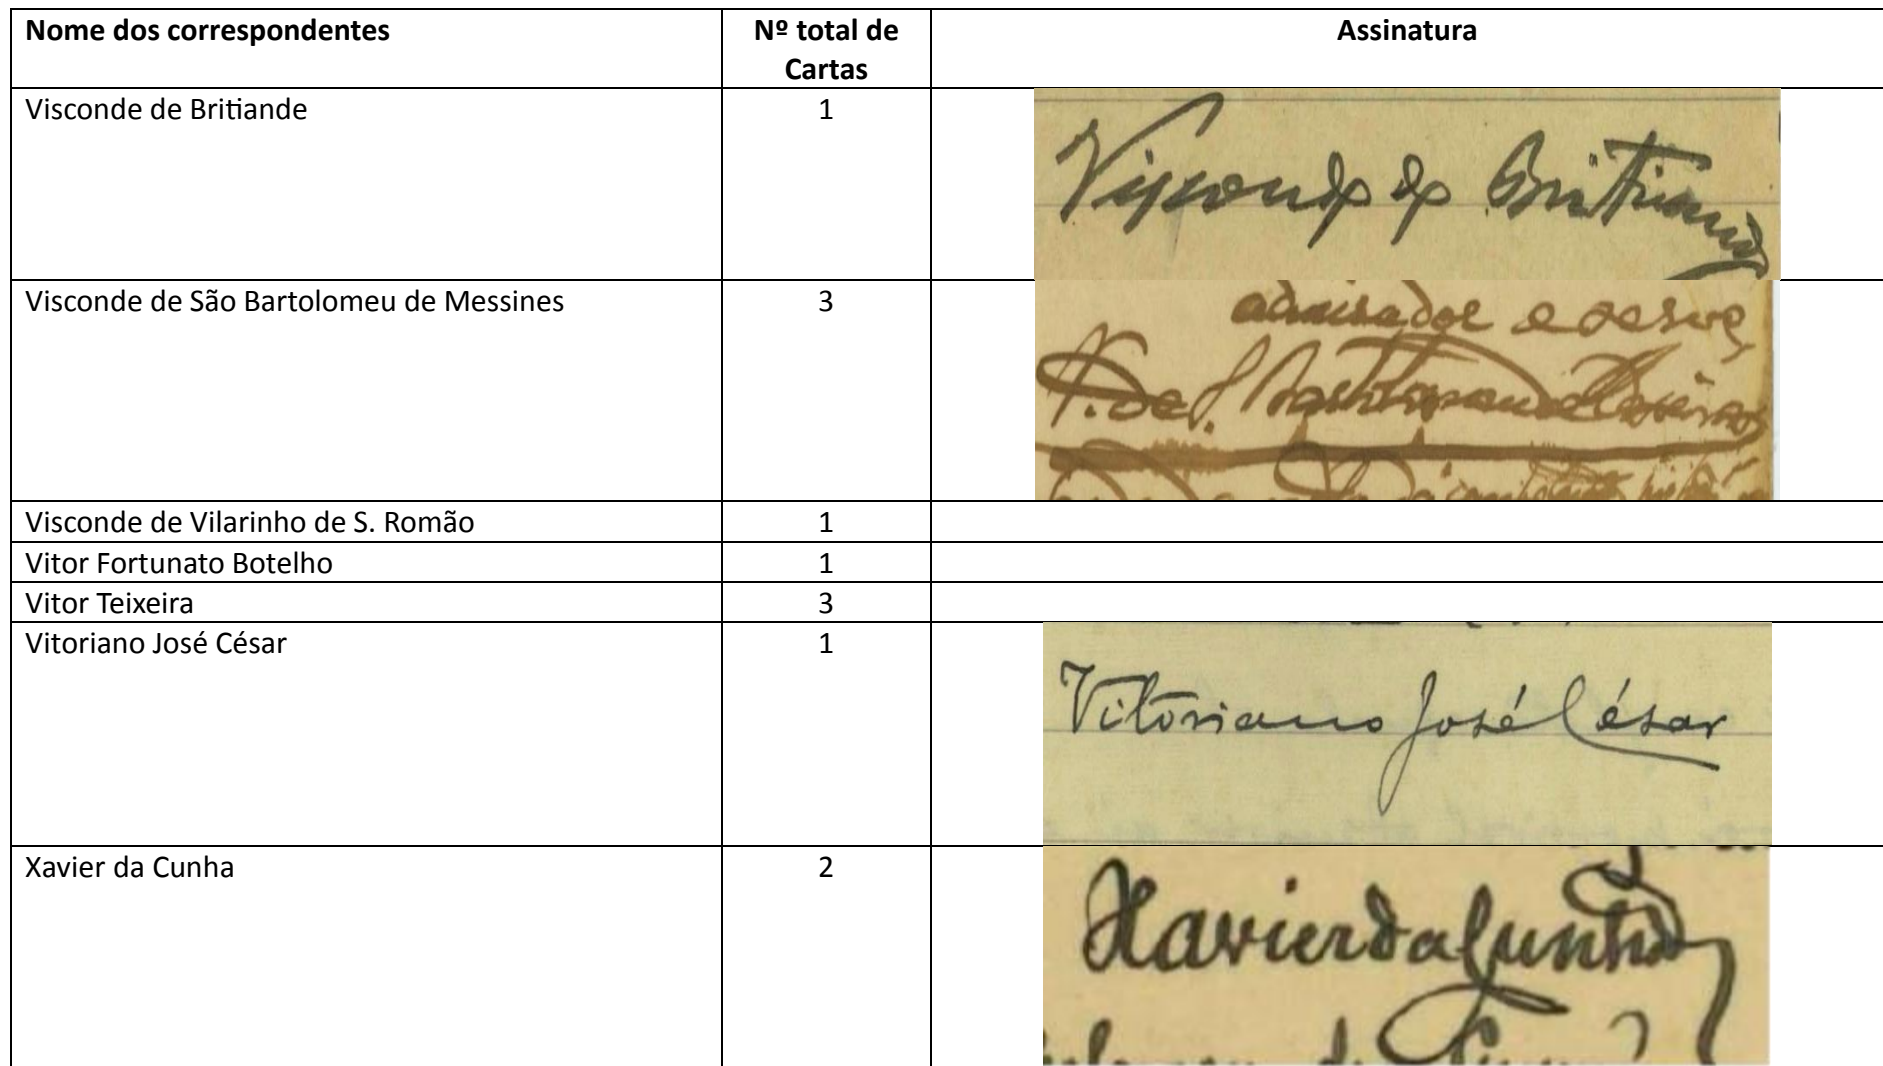 Nome dos correspondentes
Nº total de
Cartas
Assinatura
Visconde de Britiande
1
Visconde de Britiande
Visconde de São Bartolomeu de Messines
3
admirador e
V. de S. Bartolomeu de Messines
Visconde de Vilarinho de S. Romão
1
Vitor Fortunato Botelho
1
Vitor Teixeira
3
Vitoriano José César
1
Vitoriano José César
Xavier da Cunha
2
Xavier da Cunha